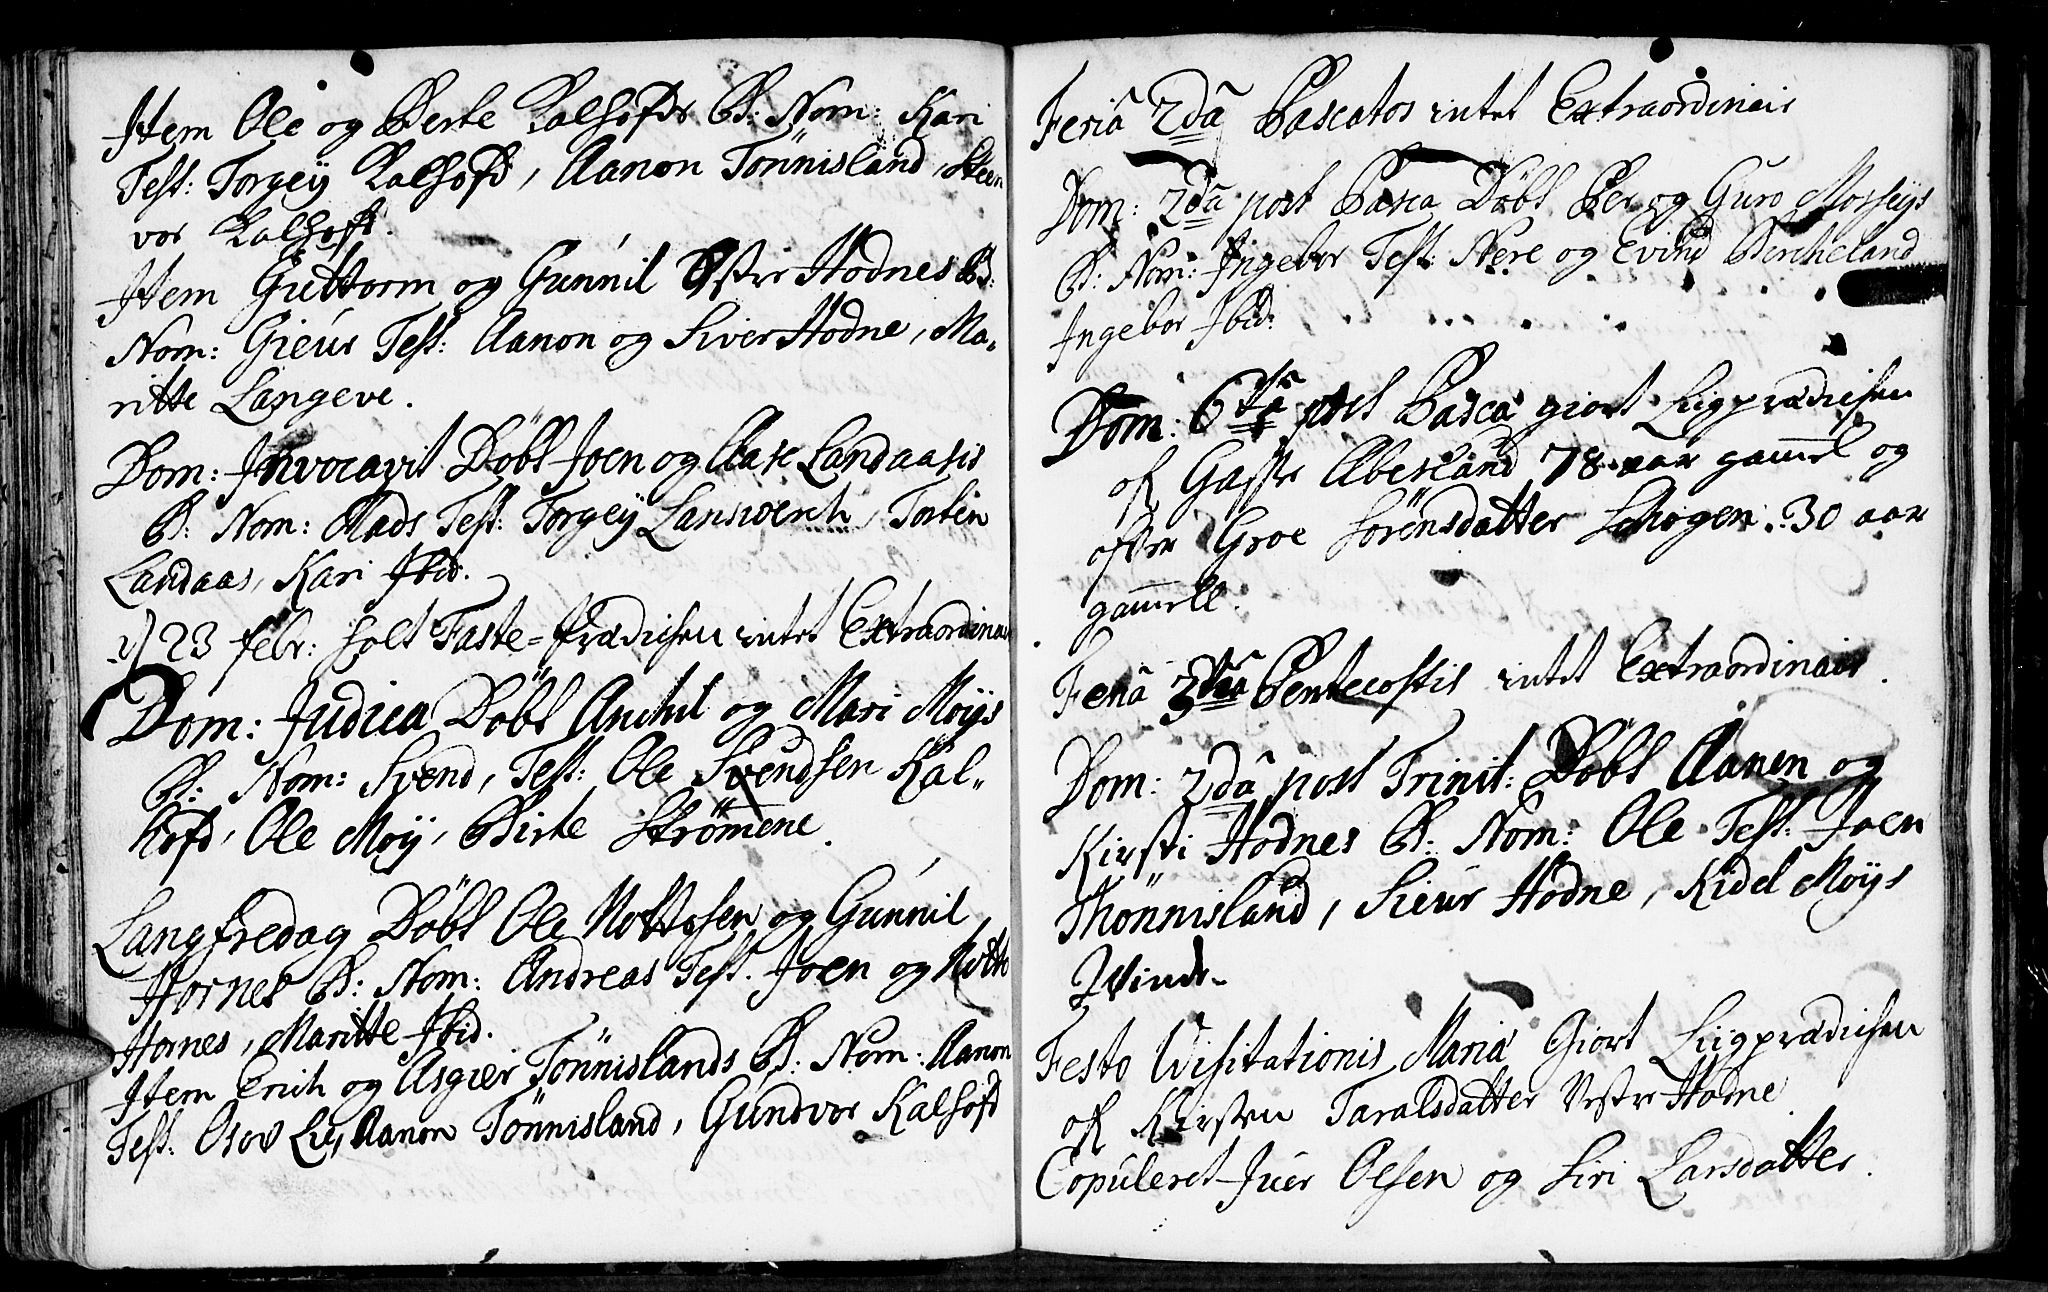 Item Ole og Berte Kalhofds B: Nom: Kari
Test: Torgey Kalhofd, Aanon Tönnisland, Steen
vor Kalhofd.
Item Guttorm og Gunnil Østre Hodnes B:
Nom: Gieur Test: Aanon og Siver Hodne, Ma„
ritte Langeve.
Dom: Invocavit Döbt Joen og Aase Landaasis
B: Nom: Mads Test: Torgey Lanswerch, Torbin
Landaas, Kari Ibid.
23 febr: holt Faste=Prædichen intet Extraordinair
Dom: Judica Döbt Anchil og Mari Möys
B: Nom: Svend, Test: Ole Svendsen Kal„
hofd, Ole Moy, Birte Strömene.
Langfredag Döbt Ole Nottosen og Gunnil
Hornes B: Nom: Andreas Test. Joen og Notto
Hornes, Maritte Ibid.
Item Erich og Asgier Tönnislands B: Nom: Aanon
Test: Osov Lie, Aanon Tönnisland, Gundvor Kalhofd
Feriâ 2dâ Pascatos intet Extraordinair
Dom: 2dâ post Pasca Döbt Per og Guro Mosseys
B: Nom: Ingebor Test: Nere og Evind Bercheland
Ingebor Ibid:
Dom: 6ta post Pasca giort Liigprædichen
of Gasse Abesland 78 aar gamel og
ofver Groe Sörensdatter Schogen 30 aar
gamell.
Feriâ 3tiâ Pentecostis intet Extraordinair.
Dom: 2dâ post Trinit: Döbt Aanen og
Kirsti Hodnes B: Nom: Ole Test: Joen
Thönnisland, Sieur Hodne, Kidel Möys
Qvinde
Festo Visitationis Mariæ Giort Liigprædichen
of Kirsten Taralsdatter Vestre Hodne
Copuleret Juer Olsen og Siri Larsdatter.